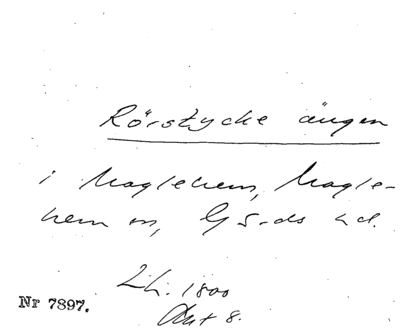 Rörstycke ängen
i Maglehem, Magle-
hem sn, Gärds hd.
LH. 1800
Akt 8.
Nr 7897.